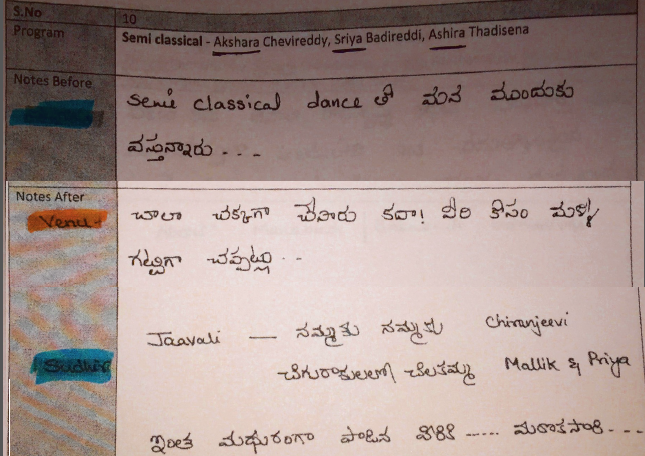 S.No 10
Program Semi classical - Akshara Chevireddy, Sriya Badireddi, Ashira Thadisena
Notes Before
semi classical dance తో మన ముందుకు
వస్తున్నారు . . .
Notes After
Venu
చాలా చక్కగా చేశారు కదా! వీరి కోసం మళ్ళీ
గట్టిగా చప్పట్లు . .
Jaavali — నమ్మకు నమ్మకు Chiranjeevi
Sudhir చిగురాకులలో చిలకమ్మ Mallik & Priya
ఇంత మధురంగా పాడిన వారికి ..... మరొకసారి . . .